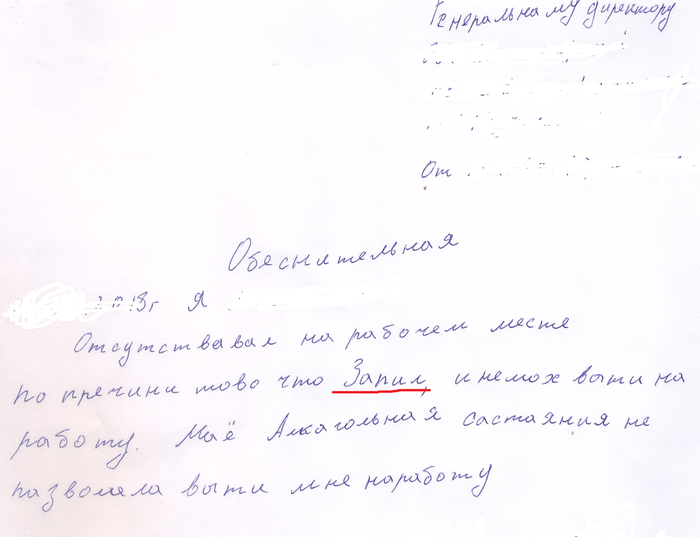 Генеральному директору
От
Обеснительная
2013г Я
Отсутствавал на рабочем месте
по пречини тово что Запил, и немох выти на
работу. Маё Алкагольная састаяния не
пазволела выти мне наработу